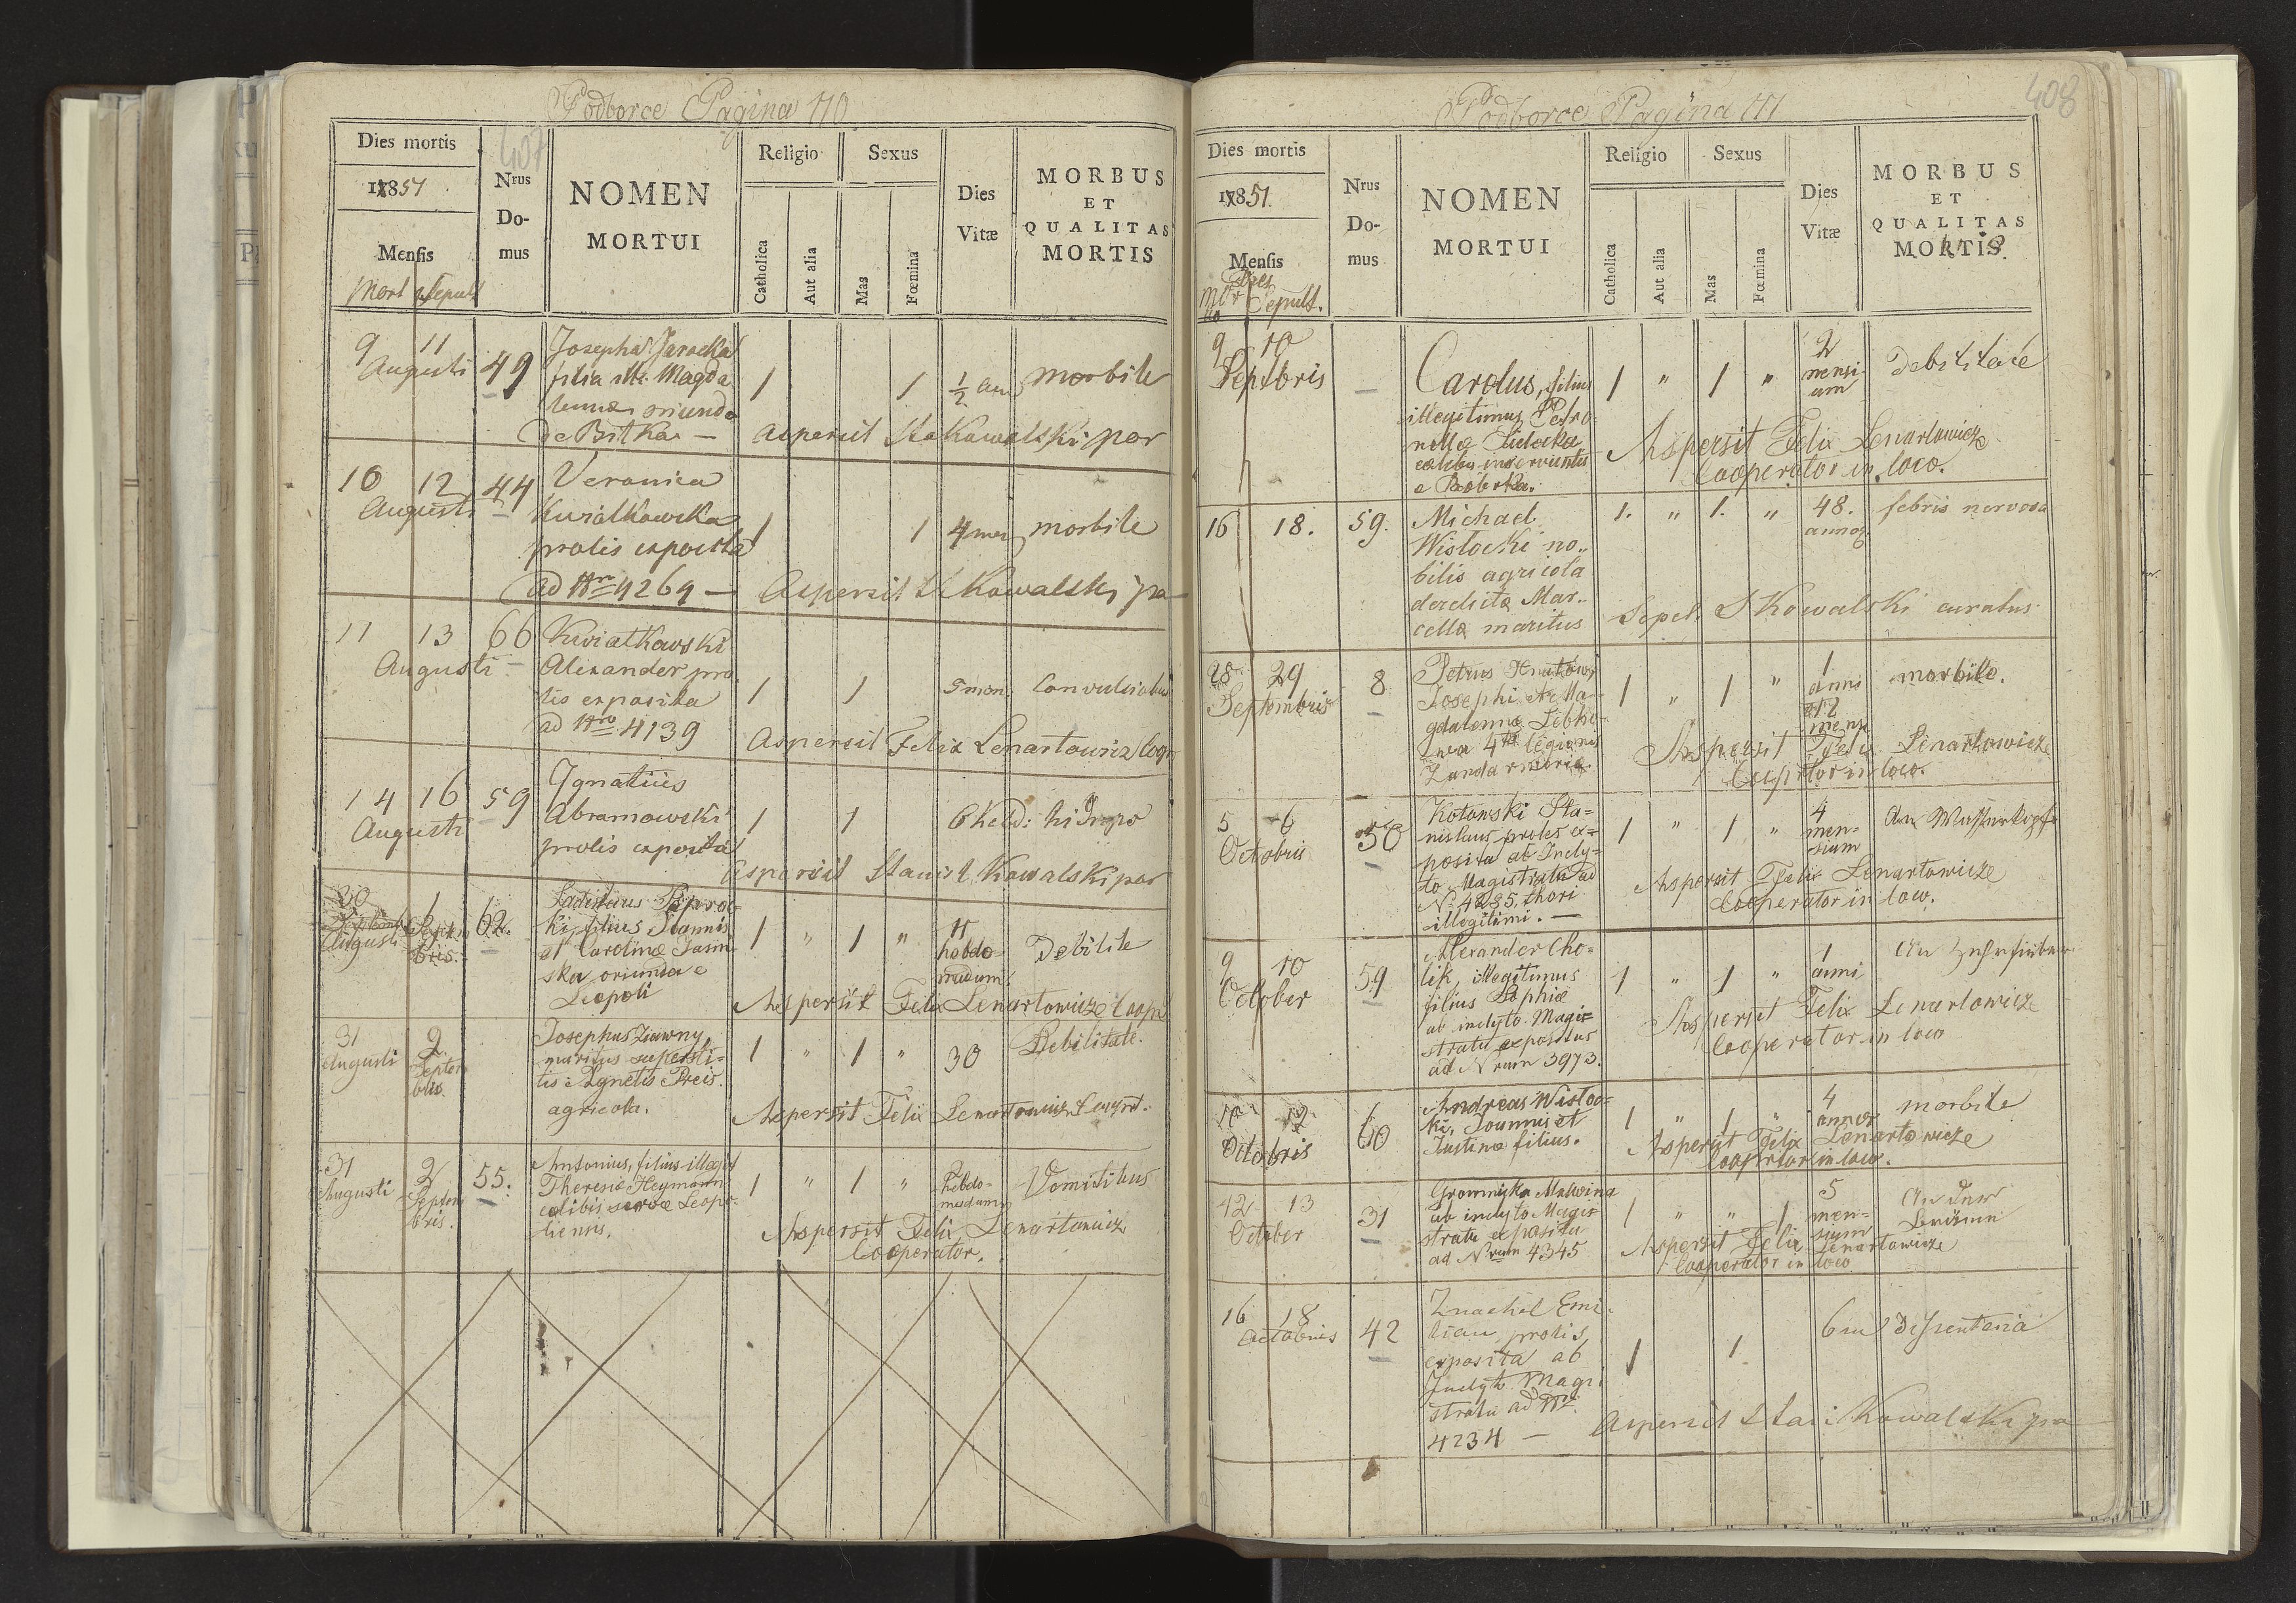 Podborce Pagina 110
407
Dies mortis
1851
Mensis
Mort Sepult
Nrus
Do-
mus
NOMEN
MORTUI
Religio
Catholica
Aut alia
Sexus
Mas
Fœmina
Dies
Vitæ
MORBUS
ET
QUALITAS
MORTIS
9 11
Augusti
49
Josepha Jarocka
filia Magda
lenna oriunda
de Bitka —
1 1 ½ an morbile
Aspersit Sta Kowalski par
10 12
Augusti
44
Veronica
Kwiatkowska
prolis exposita
ad Nro 4269 —
1 1 4 men morbile
Aspersit St Kowalski pa
11 13
Augusti
66
Kwiatkowski
Alexander pro
lis exposita
ad Nro 4139
1 1 5 men. Convulsiabus
Aspersit Felix Lenartowicz Coop
14 16
Augusti
59
Ignatius
Abramowski
prolis exposita
1 1 6 hebd: hidropo
Aspersit Stanisl Kowalski par
30
Augusti
1
Septem
bris.
62.
Ladislaus Paproc-
ki, filius Joannis
et Carolinæ Jasin
ska, oriunda e
Leopoli
1 " 1 " 11
hebdo-
madum
Debilite
Aspersit Felix Lenartowicze Coop
31
Augusti
2
Septem
bris.
Josephus Ziawny,
maritus supersti-
tis Agnetis Preis.
agricola.
1 " 1 " 30 Debilitate.
Aspersit Felix Lenartowicz Cooprt.
31
Augusti
2
Septem
bris.
55.
Antonius, filius illegit
Theresiæ Heymann
cælibis servæ Leopo-
liensis.
1 " 1 "
hebdo-
madum
Vomitibus
Aspersit Felix Lenartowicz
Cooperator.
Podborce Pagina 111
408
Dies mortis
1851.
Mensis
Dies
Mor Sepult.
Nrus
Do-
mus
NOMEN
MORTUI
Religio
Catholica
Aut alia
Sexus
Mas
Fœmina
Dies
Vitæ
MORBUS
ET
QUALITAS
MORTIS
9 10
Septbris
—
Carolus, filius
illegitimus Petro-
nellæ
cælibis inservientis
e Barszka.
1 " 1 " 2
mensi-
um
Debilitate
Aspersit Felix Lenartowicze
Cooperator in loco.
16 18. 59.
Michael
Wisłocki no-
bilis agricola
derelictæ Mar-
cellæ maritus
1. " 1. " 48.
annor
febris nervosa
Sepel. S Kowalski curatus
28 29
Septembris
8
Petrus
Josephi & Ma-
gdalennæ
4tæ legionis
Zandarmeriæ.
1 " 1 " 1
anni
mens
morbile.
Aspersit Felix Lenartowicze
Cooprtor in loco.
5 6
Octobris
50
Kotowski Sta-
nislaus, proles ex-
posita ab Incly-
to Magistratu ad
N. 4285, thori
illegitimi. —
1 " 1 " 4
men-
sium
An Wasserkopf
Aspersit Felix Lenartowicze
Cooperator in loco.
9 10
October
59
Alexander Cho-
lik, illegitimus
filius Sophiæ
ab inclyto Magis-
stratu expositus
ad Nrum 3973.
1 " 1 " 1
anni
An Zehrfieber
Aspersit Felix Lenartowicze
Cooperator in loco
10 12
Octobris
60
Andreas Wisloc-
ki, Joannis et
Justinæ filius.
1 " 1 " 4
annor
morbile
Aspersit Felix Lenartowicze
Cooprtor in loco.
12 13
October
31
Gromnicka Malwina
ab inclyto Magi-
stratu exposita
ad Nrum 4345
1 " " 1 5
men-
sium
An der
Aspersit Felix Lenartowicze
Cooperator in loco
16 18
Octobris
42
Znachel Emi-
lian, prolis
exposita ab
Inclyto Magi
stratu ad Nro
4234 —
1 1 6 m Dissenteria
Aspersit Stani Kowalski pa